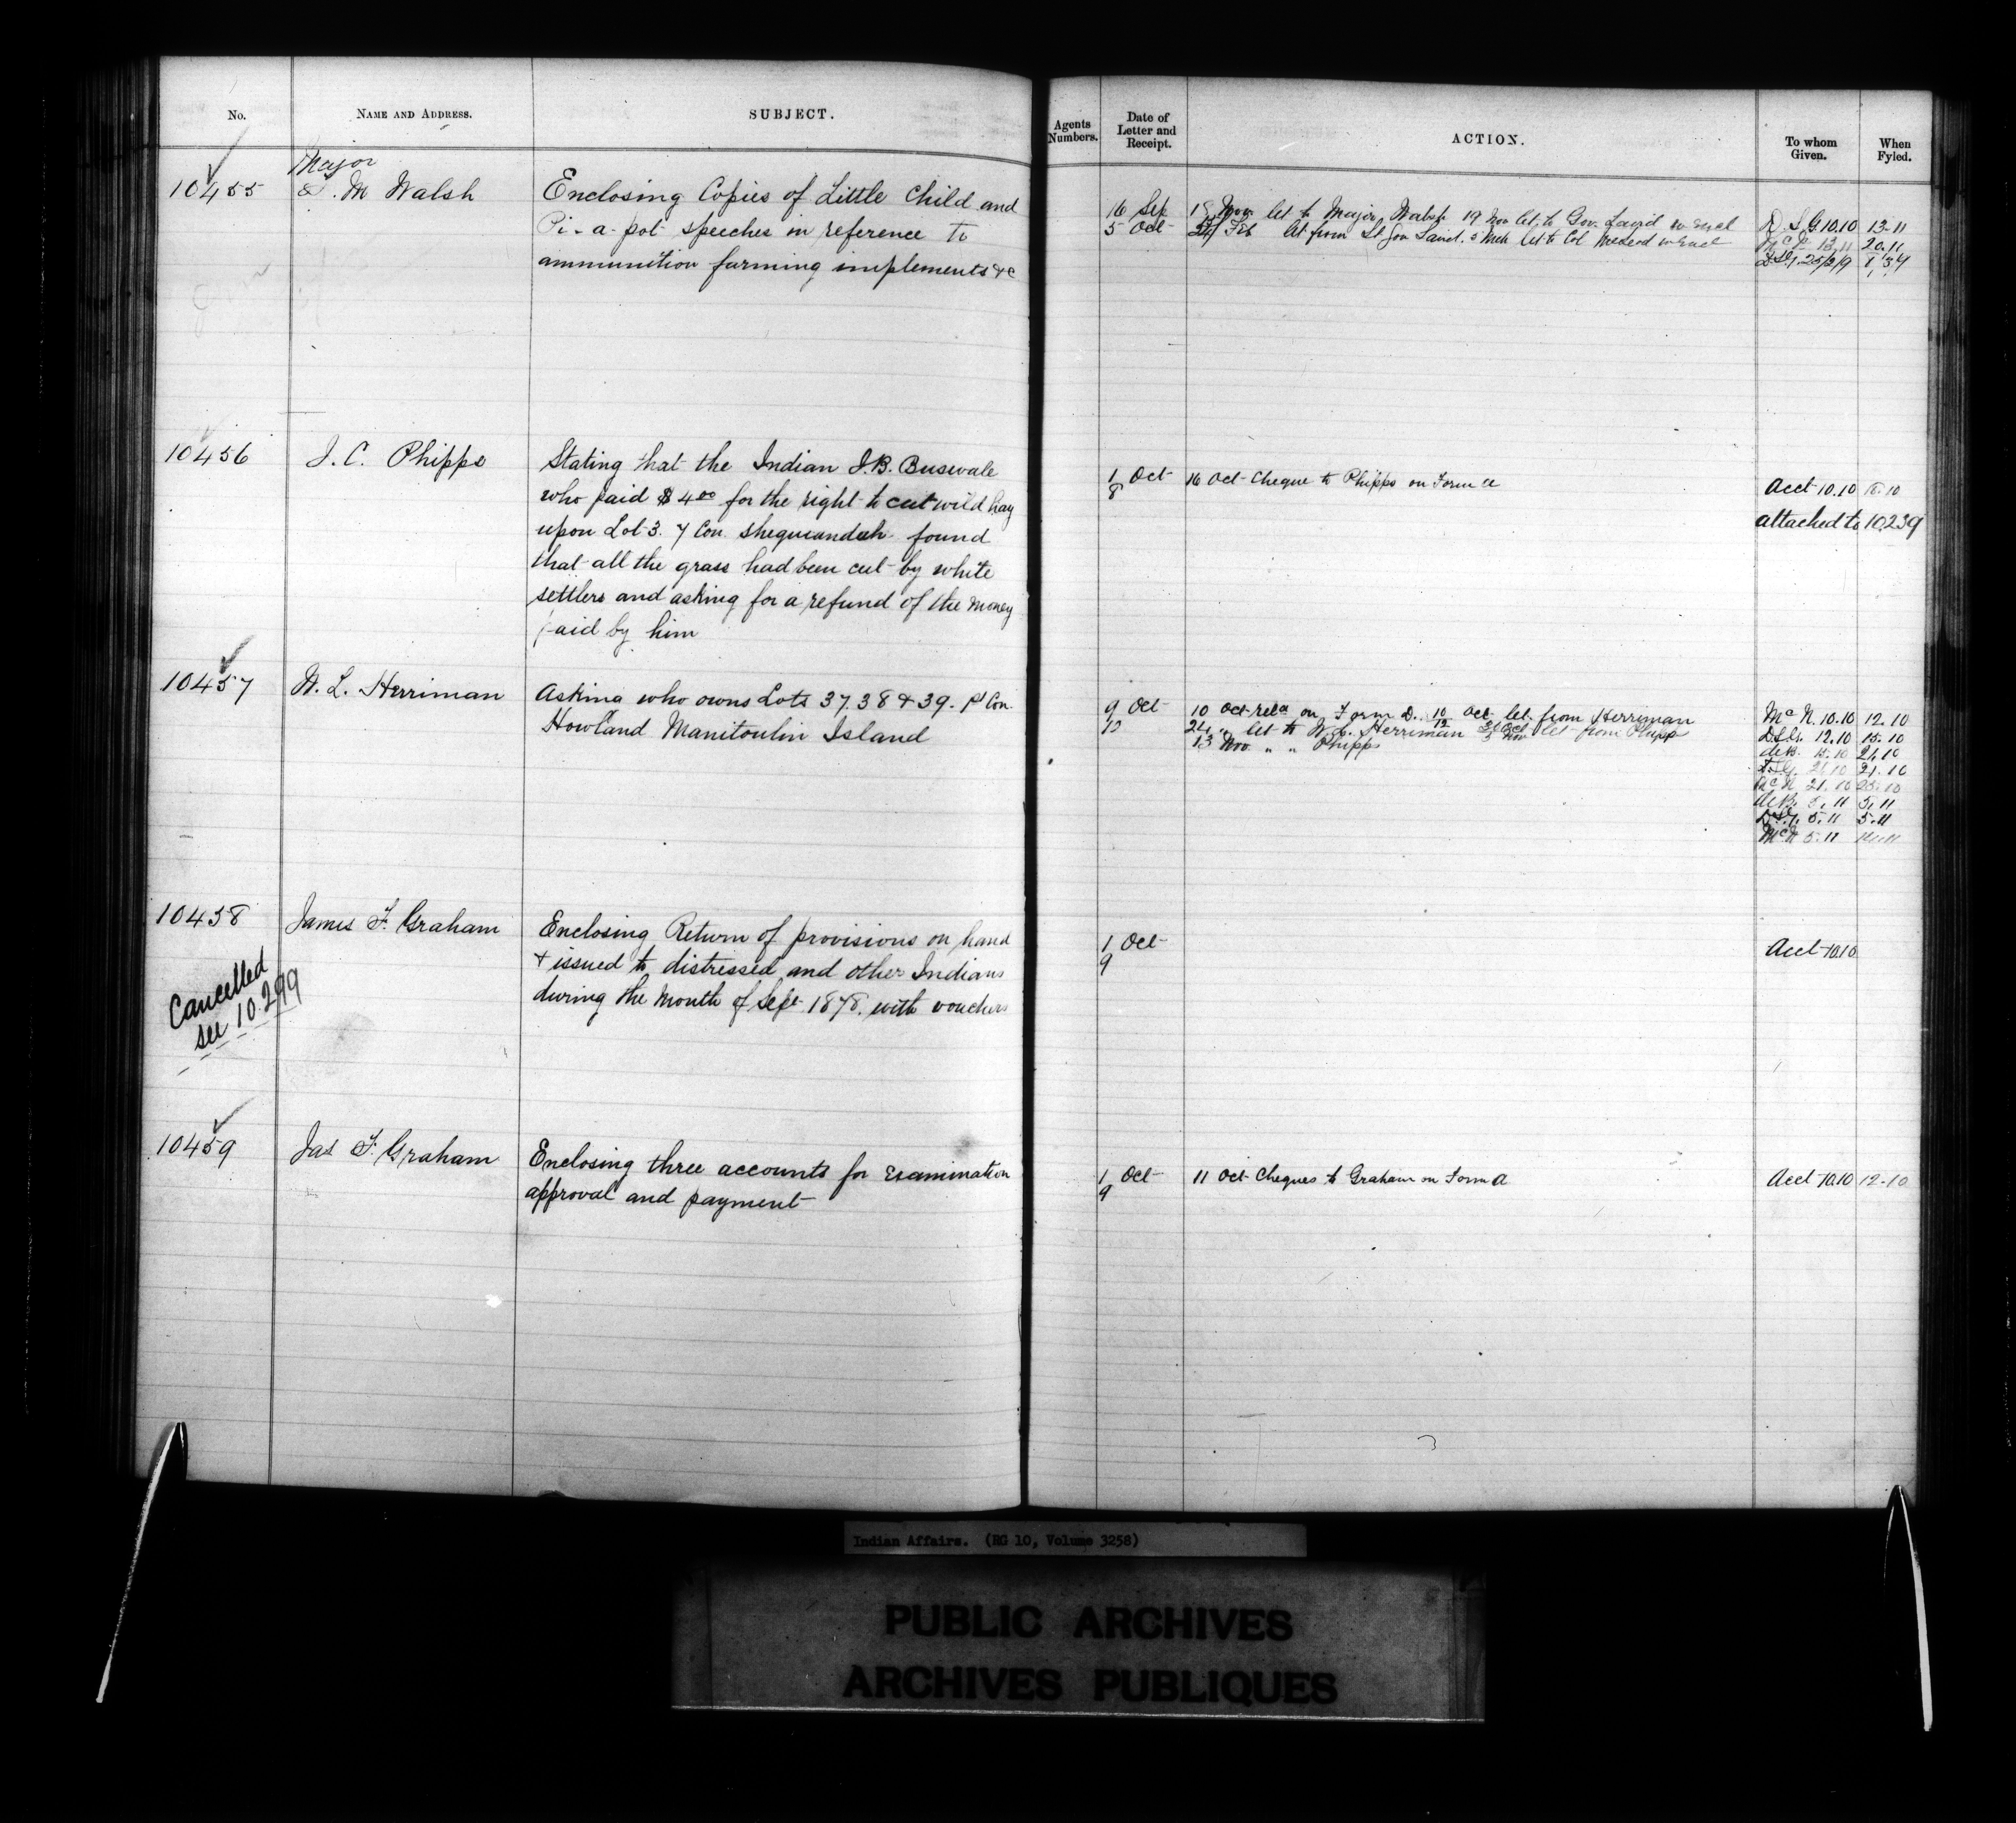 No.
NAME AND ADDRESS.
SUBJECT.
10455
Major
J. M Walsh
Enclosing Copies of Little Child and
Pi-a-pot speeches in reference to
ammunition farming implements &c
10456
J. C. Phipps
Stating that the Indian J.B. Buswale
who paid $4.00 for the right to cut wild hay
upon Lot 3. 7 Con. Sheguiandah found
that all the grass had been cut by white
settlers and asking for a refund of the money
paid by him
10457
W. L. Herriman
Asking who owns Lots 37.38 & 39. 1st Con.
Howland Manitoulin Island
10458
Cancelled
see 10.299
James F. Graham
Enclosing Return of provisions on hand
& issued to distressed and other Indians
during the month of Sept 1878. with vouchers
10459
Jas F. Graham
Enclosing three accounts for examination
approval and payment
Agents Numbers.
Date of Letter and Receipt.
ACTION.
To whom Given.
When Fyled.
16 Sep
5 Oct
18 Nov let to Major Walsh 19 Nov let. to Gov. Laird w Encl
Feb let from Lt Gov Laird. 5 Mch let to Col McLeod w Encl
D.S.G. 10.10 13.11
13.11 20.11
D.S.G. 25/2/9
1 Oct
8
16 Oct Cheque to Phipps on Form a
Acct 10.10
attached to 10239
9 Oct
12
10 Oct rela on Form D. 10/12 Oct let. from Herriman
24 " let to W.L. Herriman 31 Oct 5 Nov let from Phipps
13 Nov " " Phipps
McN. 10.10 12.10
D.S.G. 12.10 15.10
deB. 15.10 21.10
21.10 21.10
McN 21.10 25.10
deB. 5.11 5.11
D.S.G. 5.11 5.11
McN 5.11
1 Oct
9
Acct 10.10
1 Oct
9
11 Oct Cheques to Graham on Form a
Acct 10.10 12-10
Indian Affairs. (RG 10, Volume 3258)
PUBLIC ARCHIVES
ARCHIVES PUBLIQUES